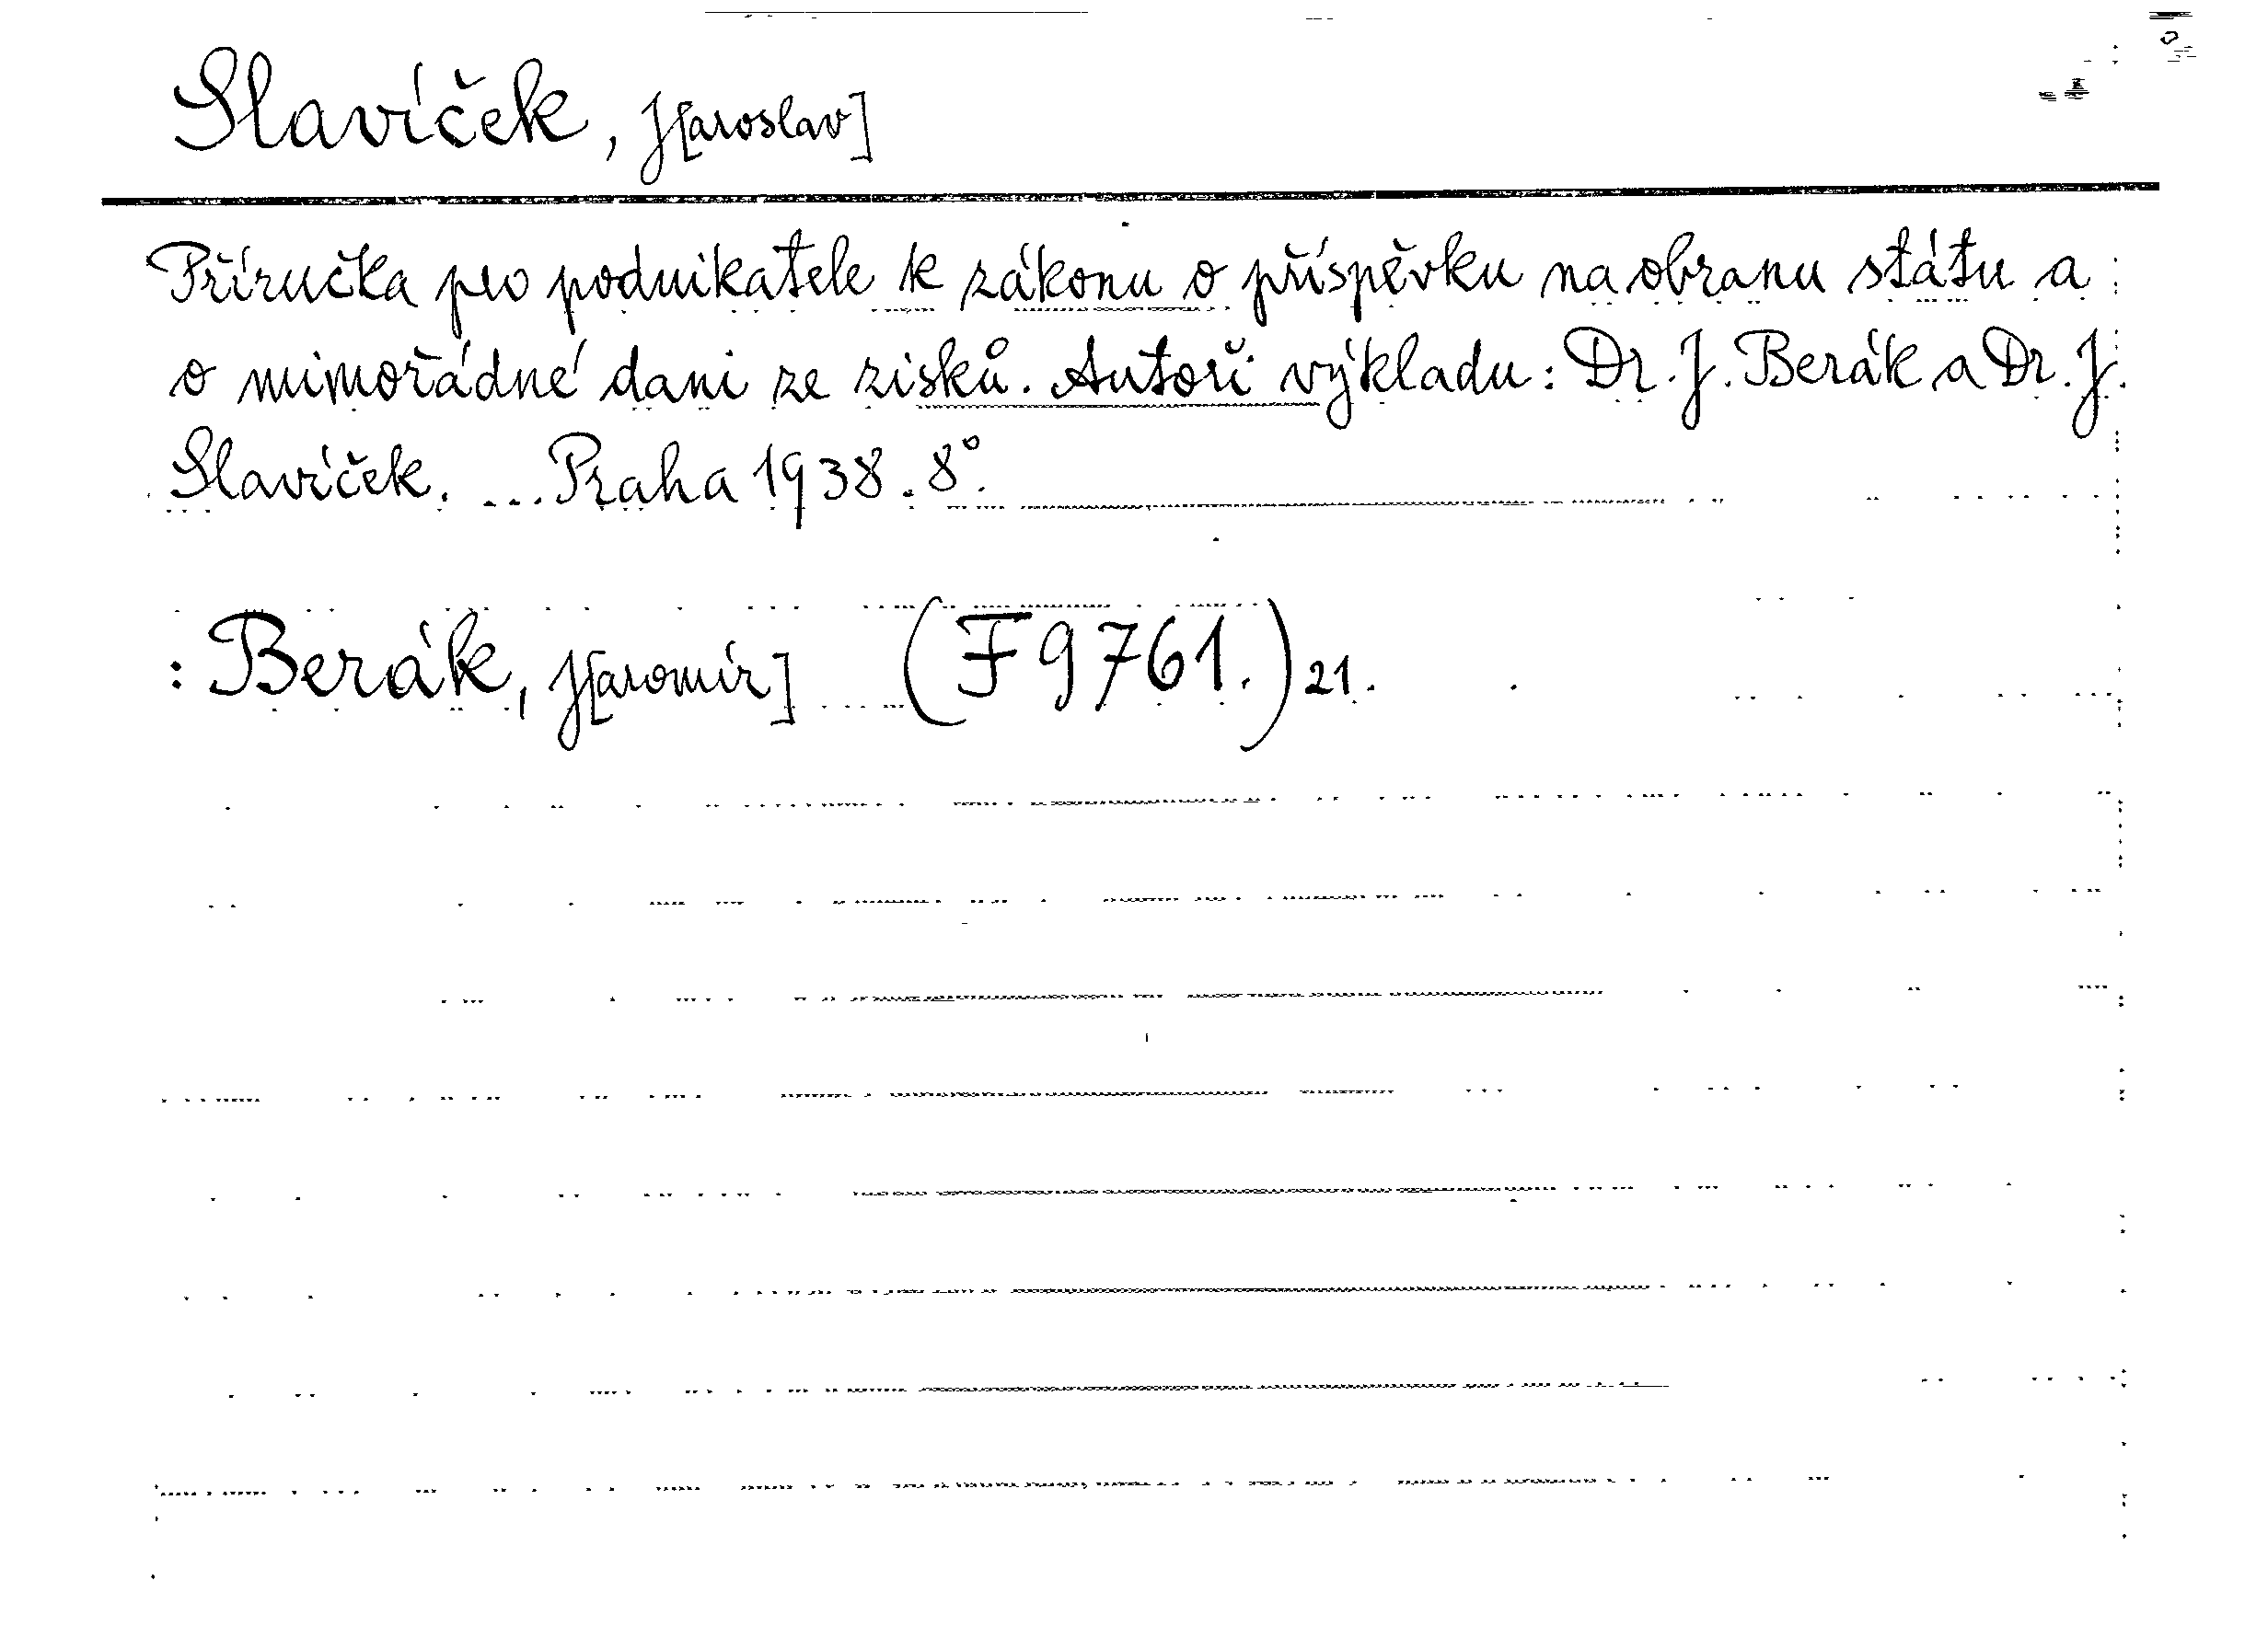 Slavíček, J[aroslav]
Příručka pro podnikatele k zákonu o příspěvku na obranu státu a
o mimořádné dani ze zisků. Autoři výkladu: Dr. J. Berák a Dr. J.
Slavíček. ... Praha 1938. 8°.
: Berák, J[aromír] (F 9761.) 21.